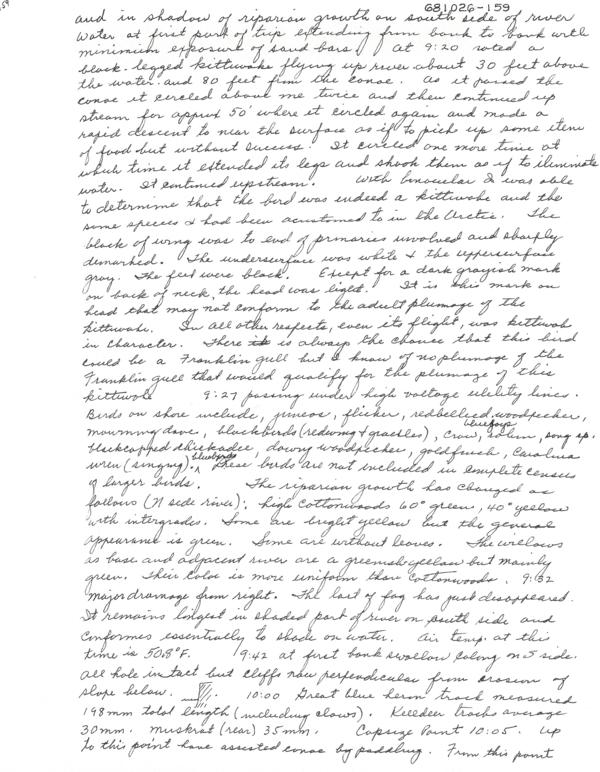 59
681026-159
and in shadow of riparian growth on south side of river
water at first part of trip extending from bank to bank with
minimum exposure of sand bars. At 9:20 noted a
black-legged kittiwake flying up river about 30 feet above
the water and 80 feet from the canoe. As it passed the
canoe it circled above me twice and then continued up
stream for approx 50' where it circled again and made a
rapid descent to near the surface as if to pick up some item
of food but without success. It circled one more time at
which time it extended its legs and shook them as if to
water. It continued upstream. With binocular I was able
to determine that the bird was indeed a kittiwake and the
same species I had been acustomed to in the Arctic. The
black of wing was to end of primaries involved and sharply
demarked. The undersurface was white & the uppersurface
gray. The feet were black. Except for a dark grayish mark
on back of neck, the head was light. It is this mark on
head that may not conform to the adult plumage of the
kittiwake. In all other respects, even its flight, was kittiwak
in character. There is always the chance that this bird
could be a Franklin gull but I know of no plumage of the
Franklin gull that would qualify for the plumage of this
kittiwake 9:27 passing under high voltage utility lines.
Birds on shore include, juncos, flicker, redbellied woodpecker,
mourning dove, blackbirds (redwing & grackles), crow, bluejays, robin, song sp.
blackcapped chickadee, downy woodpecker, goldfinch, Carolina
wren (singing), bluebirds. These birds are not included in complete census
of larger birds. The riparian growth has changed as
follows (N side river); high cottonwoods 60% green, 40% yellow
with intergrades. Some are bright yellow but the general
appearance is green. Some are without leaves. The willows
as base and adjacent river are a greenish yellow but mainly
green. Their color is more uniform than cottonwoods. 9:32
major drainage from right. The last of fog has just disappeared.
It remains longest in shaded part of river on south side and
conformes essentially to shade on water. Air temp. at this
time is 50.8°F. 9:42 at first bank swallow colony on S side.
all hole intact but cliffs now perpendicular from erosion of
slope below. 10:00 Great blue heron track measured
198mm total length (including claws). Killdeer tracks average
30mm. muskrat (rear) 35mm. Capsize Point 10:05. Up
to this point have assisted canoe by paddling. From this point